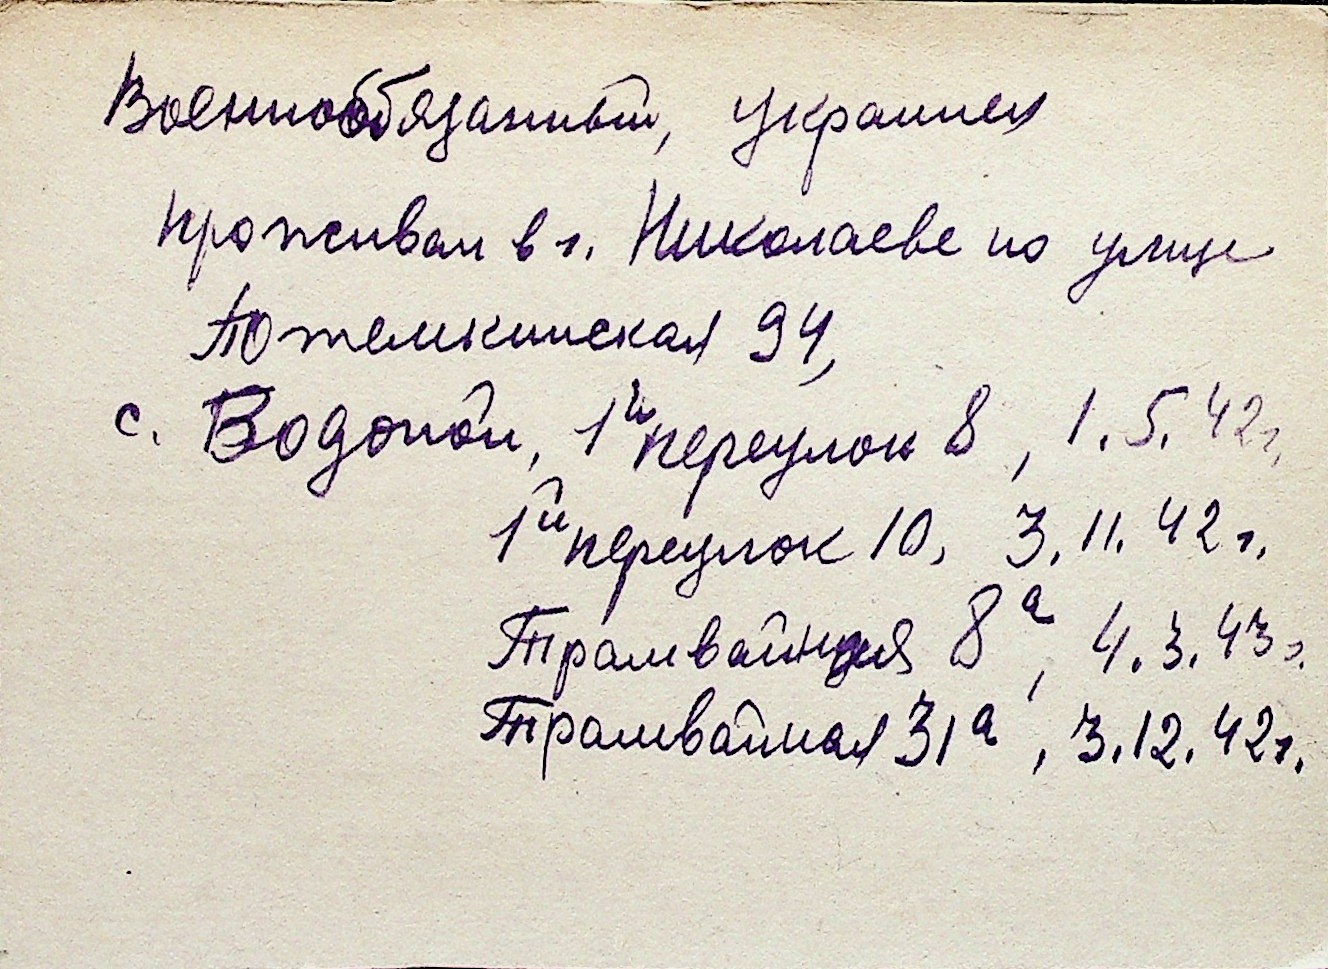 Военнообязанный, украинец
проживал в г. Николаеве по улице
Потемкинская 94,
с. Водопой, 1й переулок 8, 1.5.42г.
1й переулок 10, 3.11.42г.
Трамвайная 8а, 4.3.43г.
Трамвайная 31а, 3.12.42г.